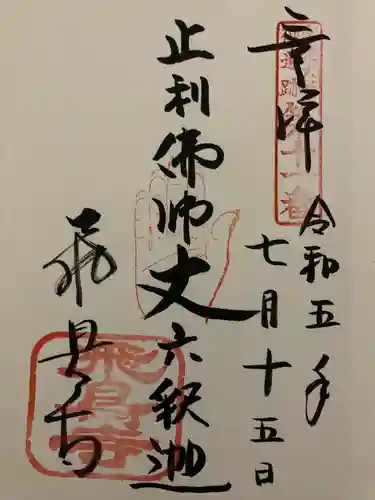 奉拝
遺跡第十一番
令和五年
七月十五日
止利佛師丈六釈迦
飛鳥寺
飛鳥寺